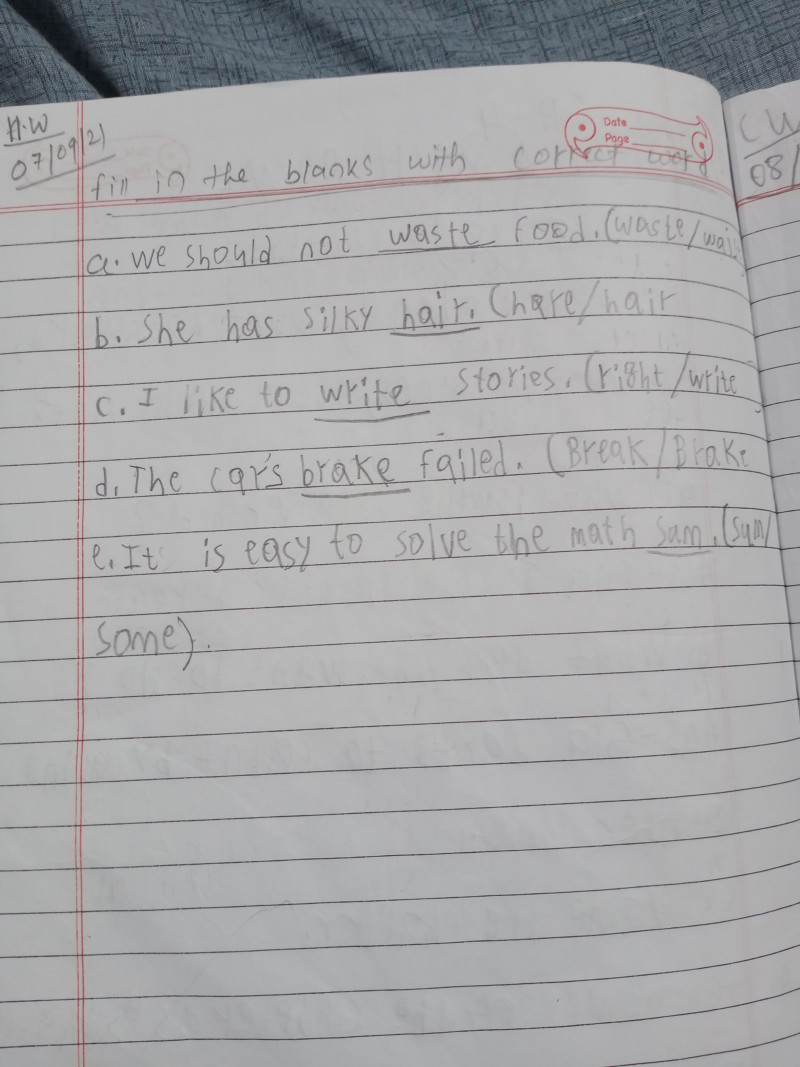 H.W
07/09/21
Date
Page
fill in the blanks with correct word
a. we should not waste food. (waste/
b. She has silky hair. (hare/hair
c. I like to write stories. (right/write
d. The car's brake failed. (Break/Brake
e. It is easy to solve the math sum. (sum/
some).
CW
08/